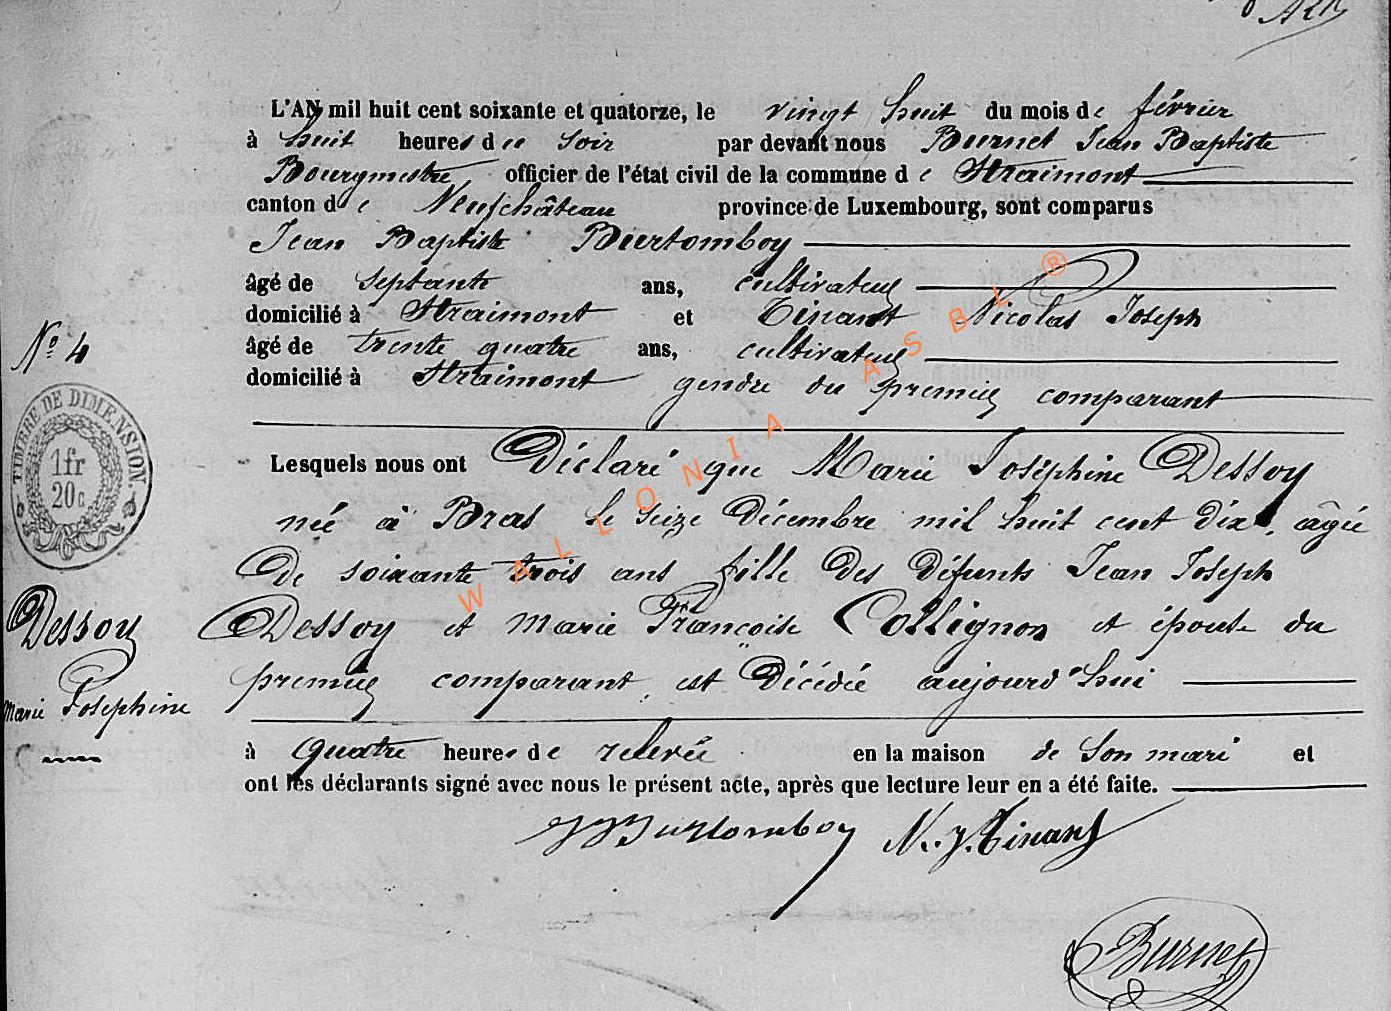 L'AN mil huit cent soixante et quatorze, le vingt huit du mois de février
à huit heures du soir par devant nous Burnet Jean Baptiste
Bourgmestre officier de l'état civil de la commune de Straimont
canton de Neufchâteau province de Luxembourg, sont comparus
Jean Baptiste Burtomboy
âgé de septante ans, cultivateur
domicilié à Straimont et Tinant Nicolas Joseph
âgé de trente quatre ans, cultivateur
domicilié à Straimont gendre du premier comparant
N° 4
TIMBRE DE DIMENSION
1fr
20c
Lesquels nous ont Déclaré que Marie Joséphine Dessoy
née à Bras le seize Décembre mil huit cent dix, âgée
De soixante trois ans fille Des Défunts Jean Joseph
Dessoy et Marie Françoise Collignon et épouse du
premier comparant, est Décédée aujourd'hui
Dessoy
Marie Josephine
à quatre heures de relevée en la maison de son mari et
ont les déclarants signé avec nous le présent acte, après que lecture leur en a été faite.
JJBurtomboy N. J. Tinant
Burnet
WALLONIA ASBL ®